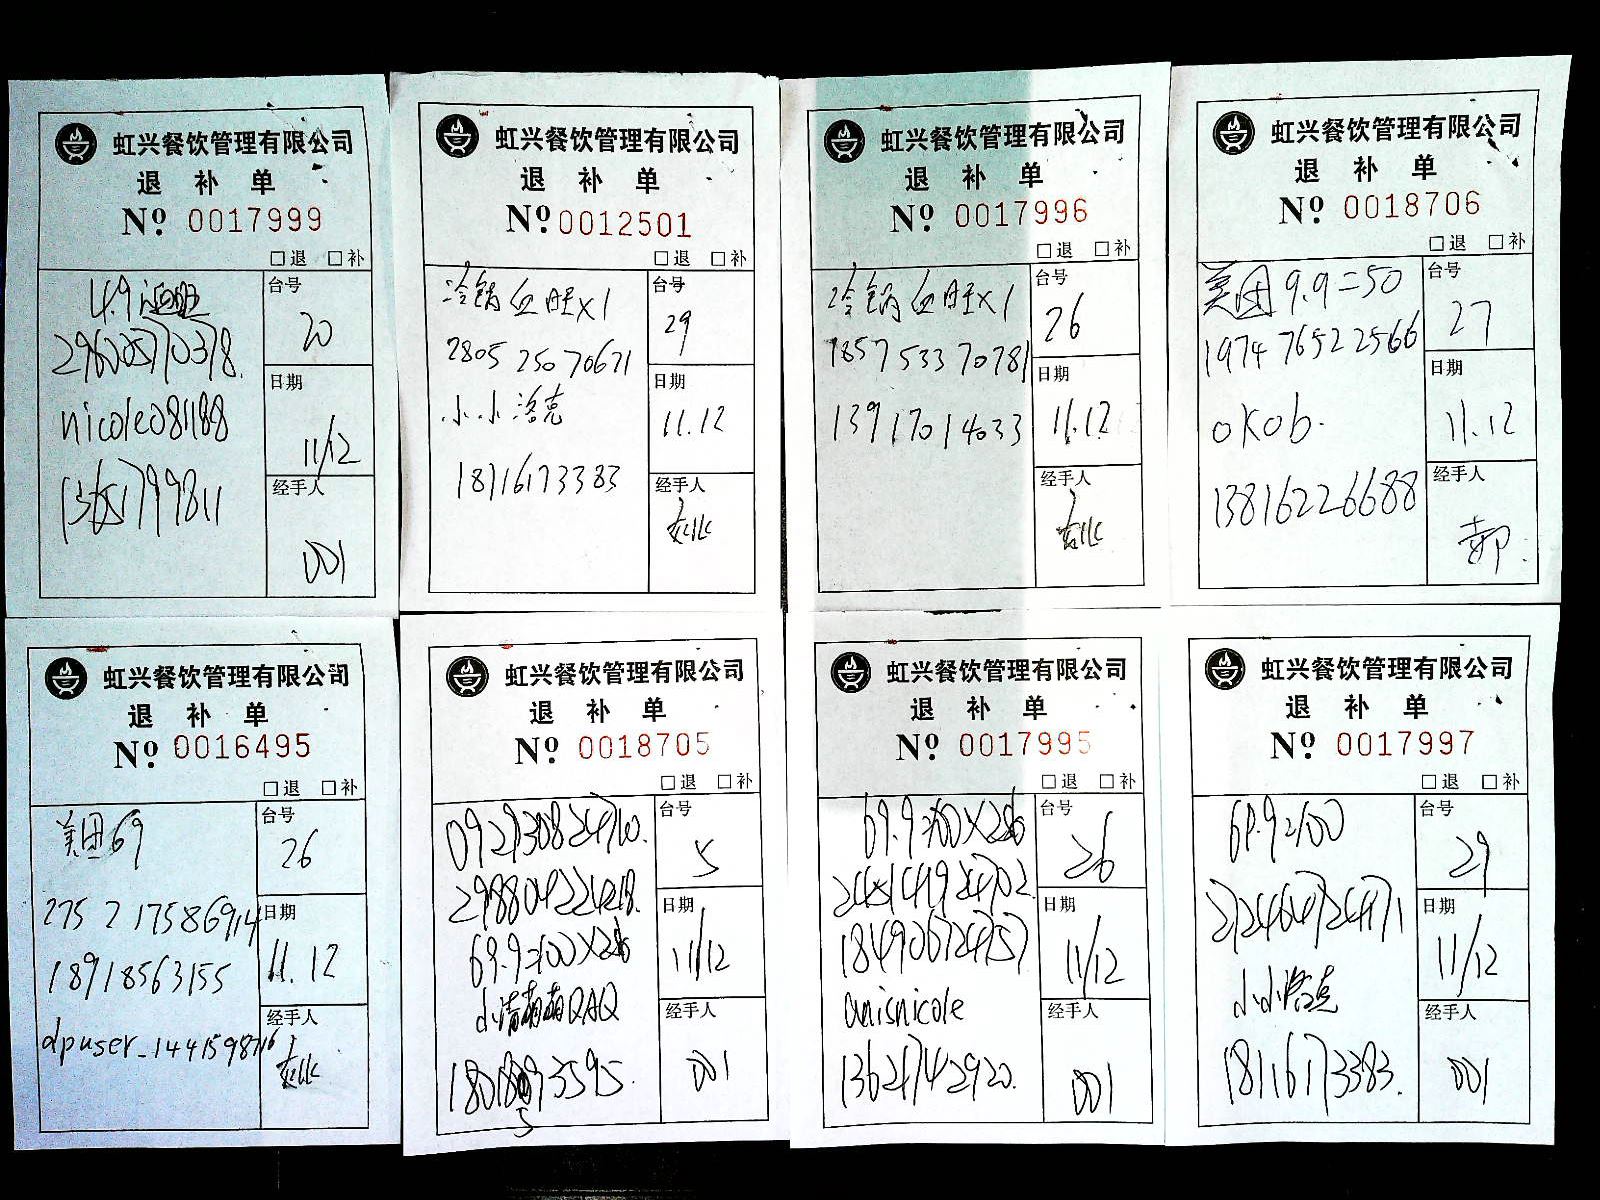 虹兴餐饮管理有限公司
退 补 单
Nº 0017999
□退 □补
4.9
nicole081188
13651799811
台号
20
日期
11/12
经手人
001
虹兴餐饮管理有限公司
退 补 单
Nº 0012501
□退 □补
冷锅血旺x1
2805 250 70671
小小洛克
18116173383
台号
29
日期
11.12
经手人
虹兴餐饮管理有限公司
退 补 单
Nº 0017996
□退 □补
冷锅血旺x1
1857 533 70781
13917014033
台号
26
日期
11.12
经手人
虹兴餐饮管理有限公司
退 补 单
Nº 0018706
□退 □补
美团9.9=50
1974 7652 2566
okob.
13816226688
台号
27
日期
11.12
经手人
郝
虹兴餐饮管理有限公司
退 补 单
Nº 0016495
□退 □补
美团69
275 2 1758 6914
18918563155
dpuser_1441598716
台号
26
日期
11.12
经手人
虹兴餐饮管理有限公司
退 补 单
Nº 0018705
□退 □补
69.9=100X2
QAQ
台号
5
日期
11/12
经手人
001
虹兴餐饮管理有限公司
退 补 单
Nº 0017995
□退 □补
69.9=100X2
anisnicole
13624742920.
台号
26
日期
11/12
经手人
001
虹兴餐饮管理有限公司
退 补 单
Nº 0017997
□退 □补
69.9=100
小小洛克
18116173383.
台号
29
日期
11/12
经手人
001